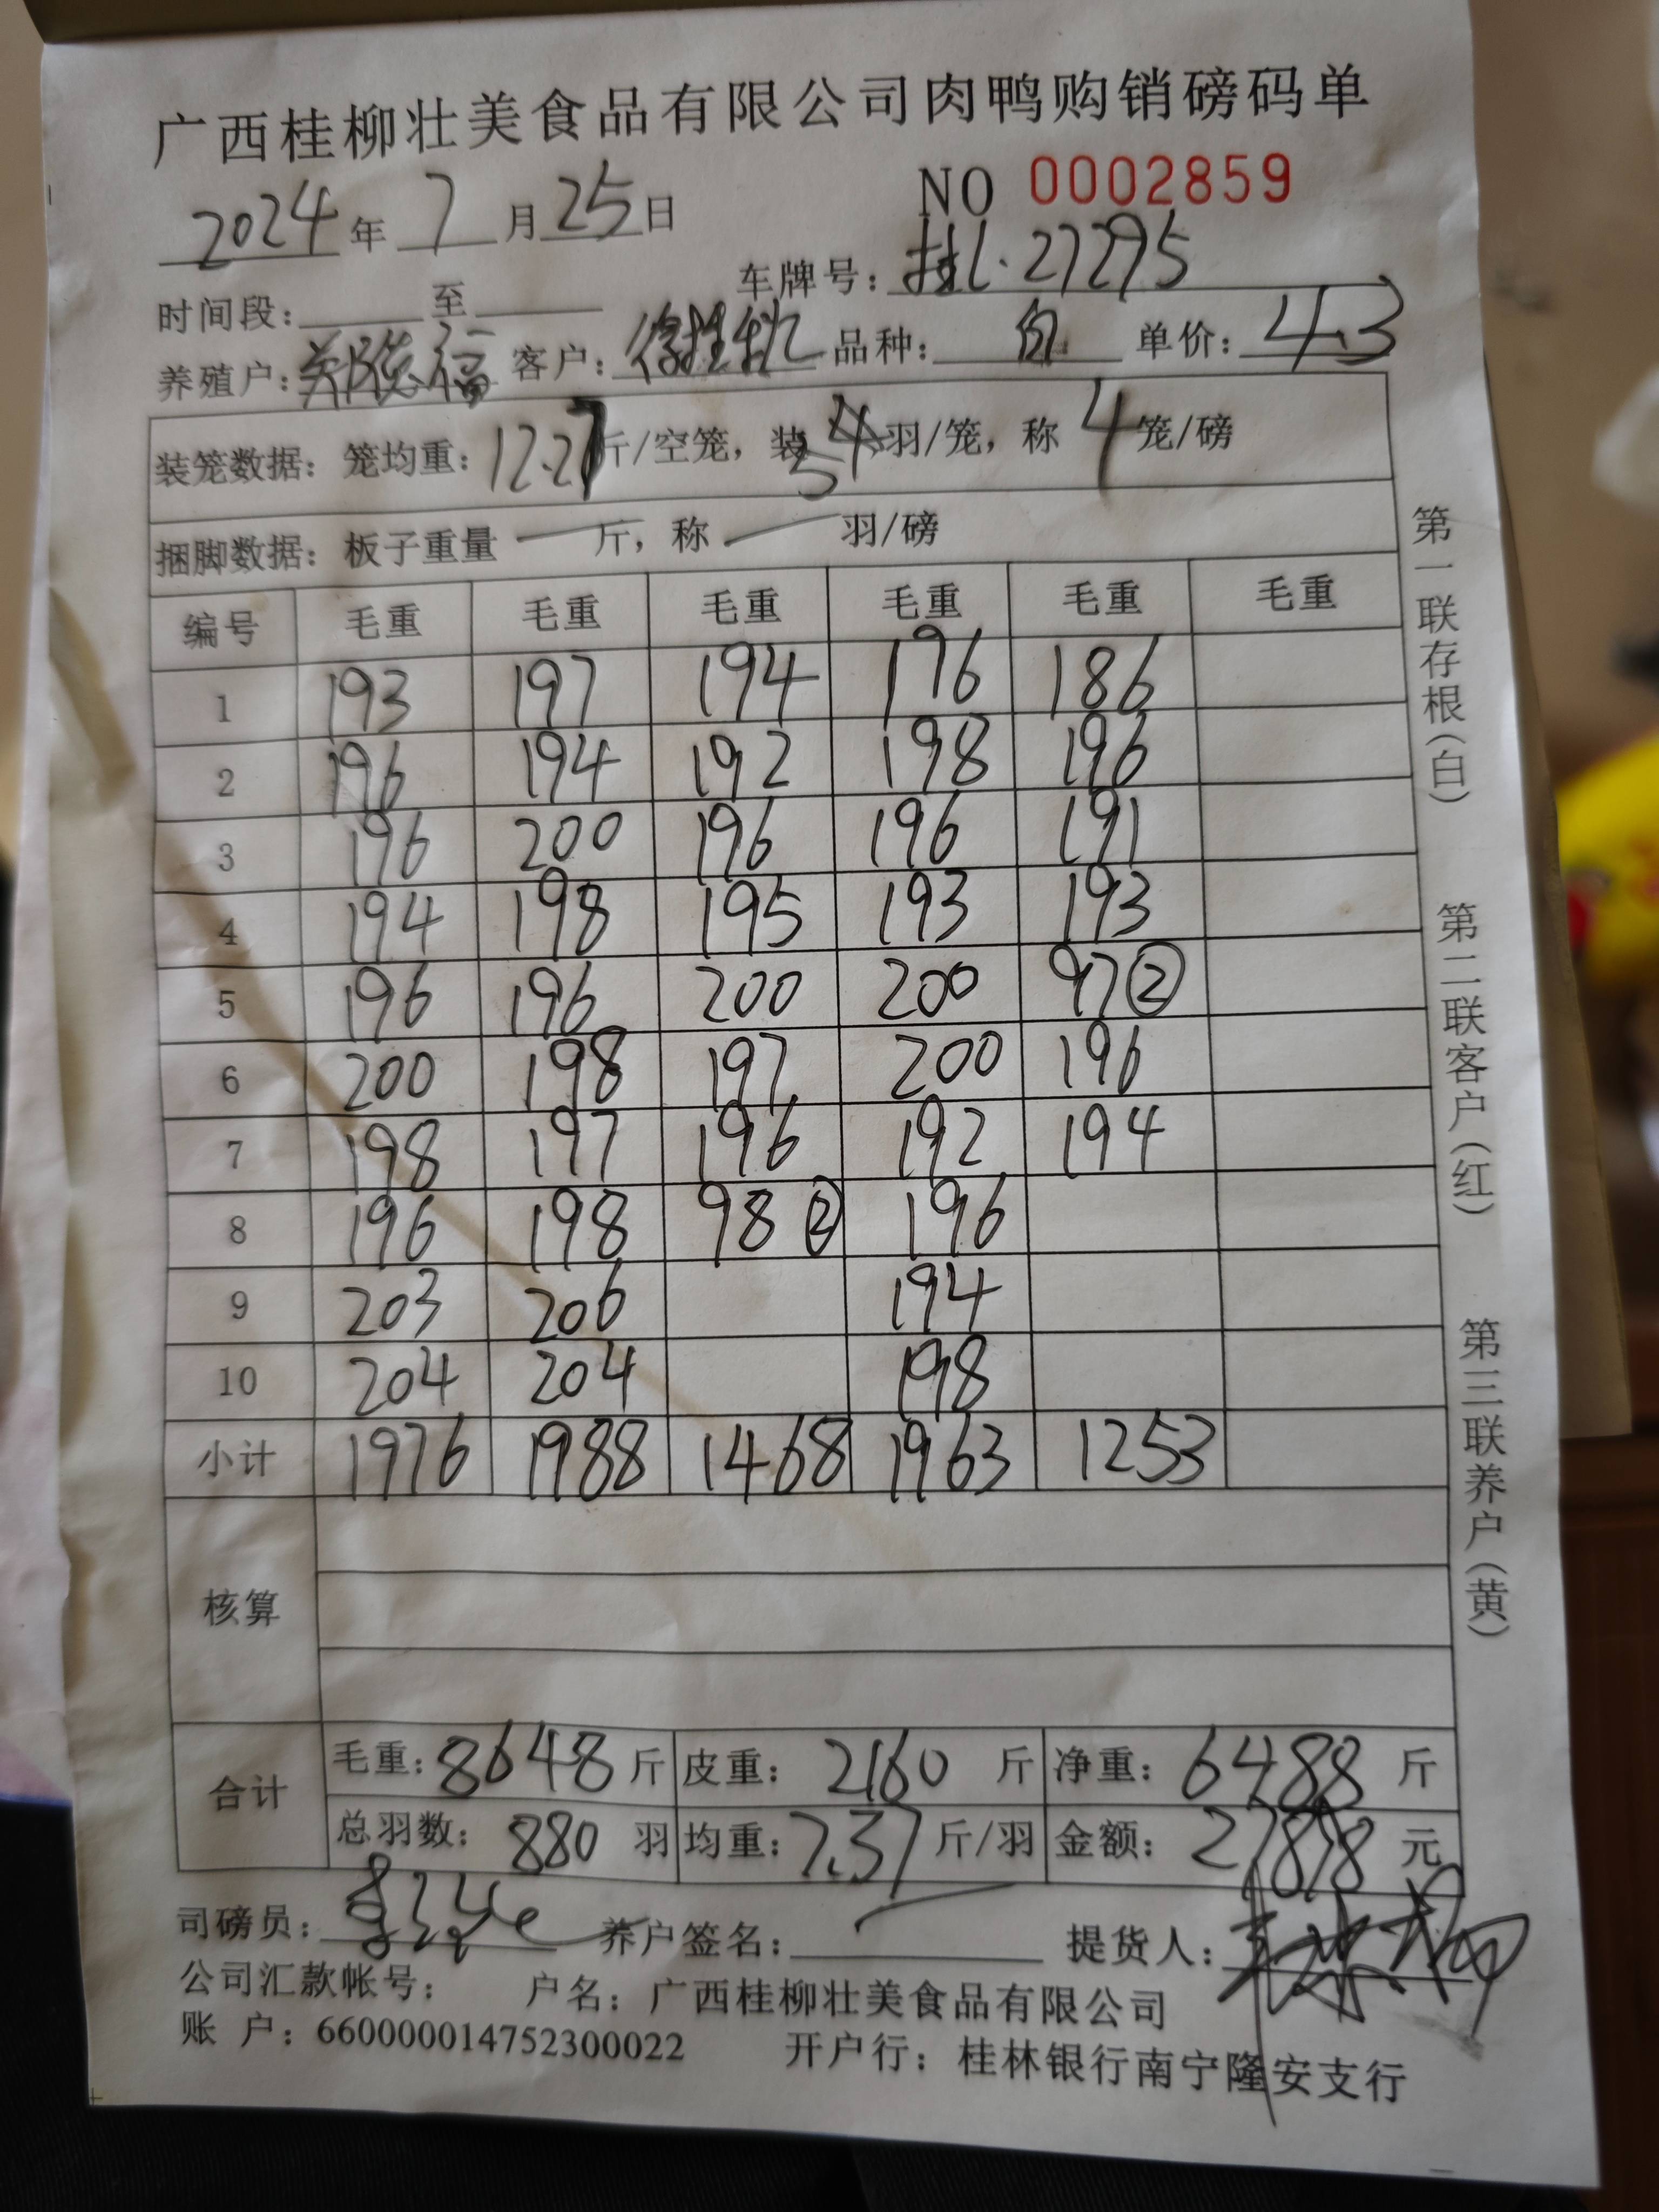 广西桂柳壮美食品有限公司肉鸭购销磅码单
NO 0002859
2024年 7 月 25 日
车牌号：桂L·27295
时间段： 至
养殖户： 福 客户：徐桂 品种：白 单价：4.3
装笼数据：笼均重：12.27斤/空笼，装5羽/笼，称4笼/磅
捆脚数据：板子重量 一 斤，称 一 羽/磅
编号 毛重 毛重 毛重 毛重 毛重 毛重
1 193 197 194 176 186
2 196 194 192 198 196
3 196 200 196 196 191
4 194 198 195 193 193
5 196 196 200 200 97②
6 200 198 197 200 196
7 198 197 196 192 194
8 196 198 98② 196
9 203 206 194
10 204 204 198
小计 1976 1988 1468 1963 1253
核算
合计
毛重：8648斤 皮重：2160斤 净重：6488斤
总羽数：880羽 均重：7.37斤/羽 金额：27898元
司磅员： 养户签名： 提货人：
公司汇款帐号： 户名：广西桂柳壮美食品有限公司
账 户：660000014752300022 开户行：桂林银行南宁隆安支行
第一联存根（白）
第二联客户（红）
第三联养户（黄）